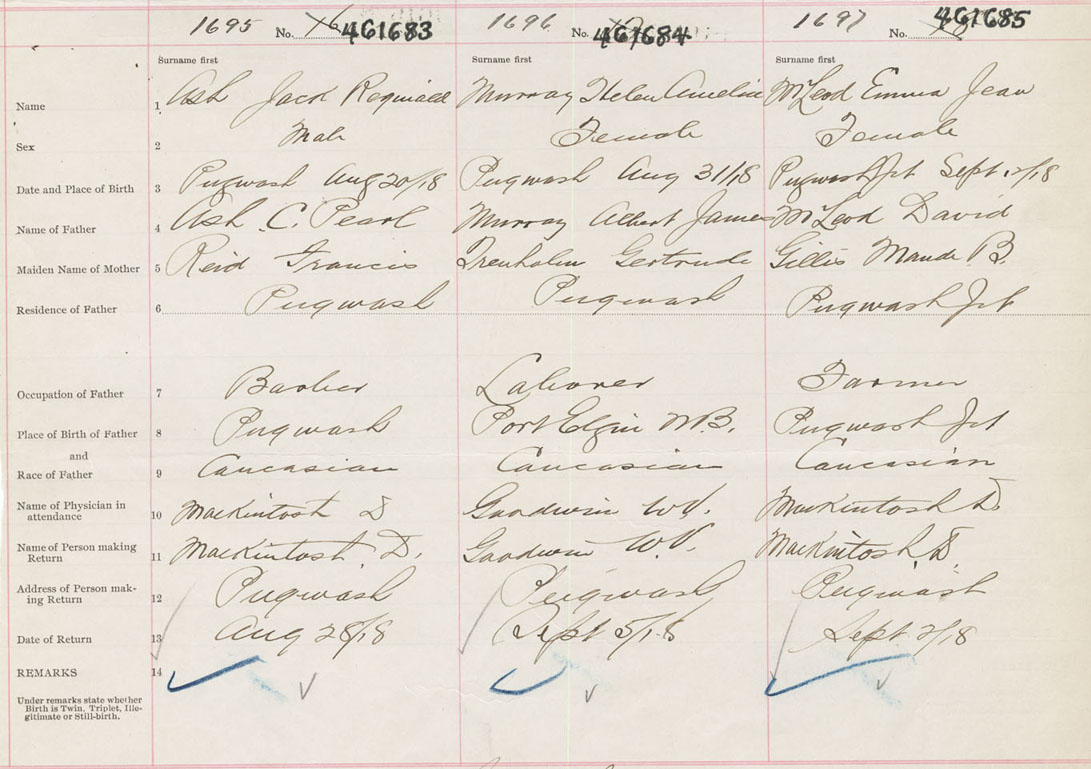 1695 No. 461683 1696 No. 461684 1697 No. 461685
Surname first Surname first Surname first
Name 1 Ash Jack Reginald Murray Helen Amelia McLeod Emma Jean
Sex 2 Male Female Female
Date and Place of Birth 3 Pugwash Aug 20/18 Pugwash Aug 31/18 Pugwash Jct Sept. 2/18
Name of Father 4 Ash C. Pearl Murray Albert James McLeod David
Maiden Name of Mother 5 Reid Francis Trenholm Gertrude Gillis Maude B.
Residence of Father 6 Pugwash Pugwash Pugwash Jct
Occupation of Father 7 Barber Laborer Farmer
Place of Birth of Father 8 Pugwash Port Elgin N.B. Pugwash Jct
and
Race of Father 9 Caucasian Caucasian Caucasian
Name of Physician in
attendance 10 Mackintosh D Goodwin W.V. Mackintosh D.
Name of Person making
Return 11 Mackintosh, D. Goodwin W.V. Mackintosh, D.
Address of Person mak-
ing Return 12 Pugwash Pugwash Pugwash
Date of Return 13 Aug 28/18 Sept 5/18 Sept. 2/18
REMARKS 14
Under remarks state whether
Birth is Twin, Triplet, Ille-
gitimate or Still-birth.